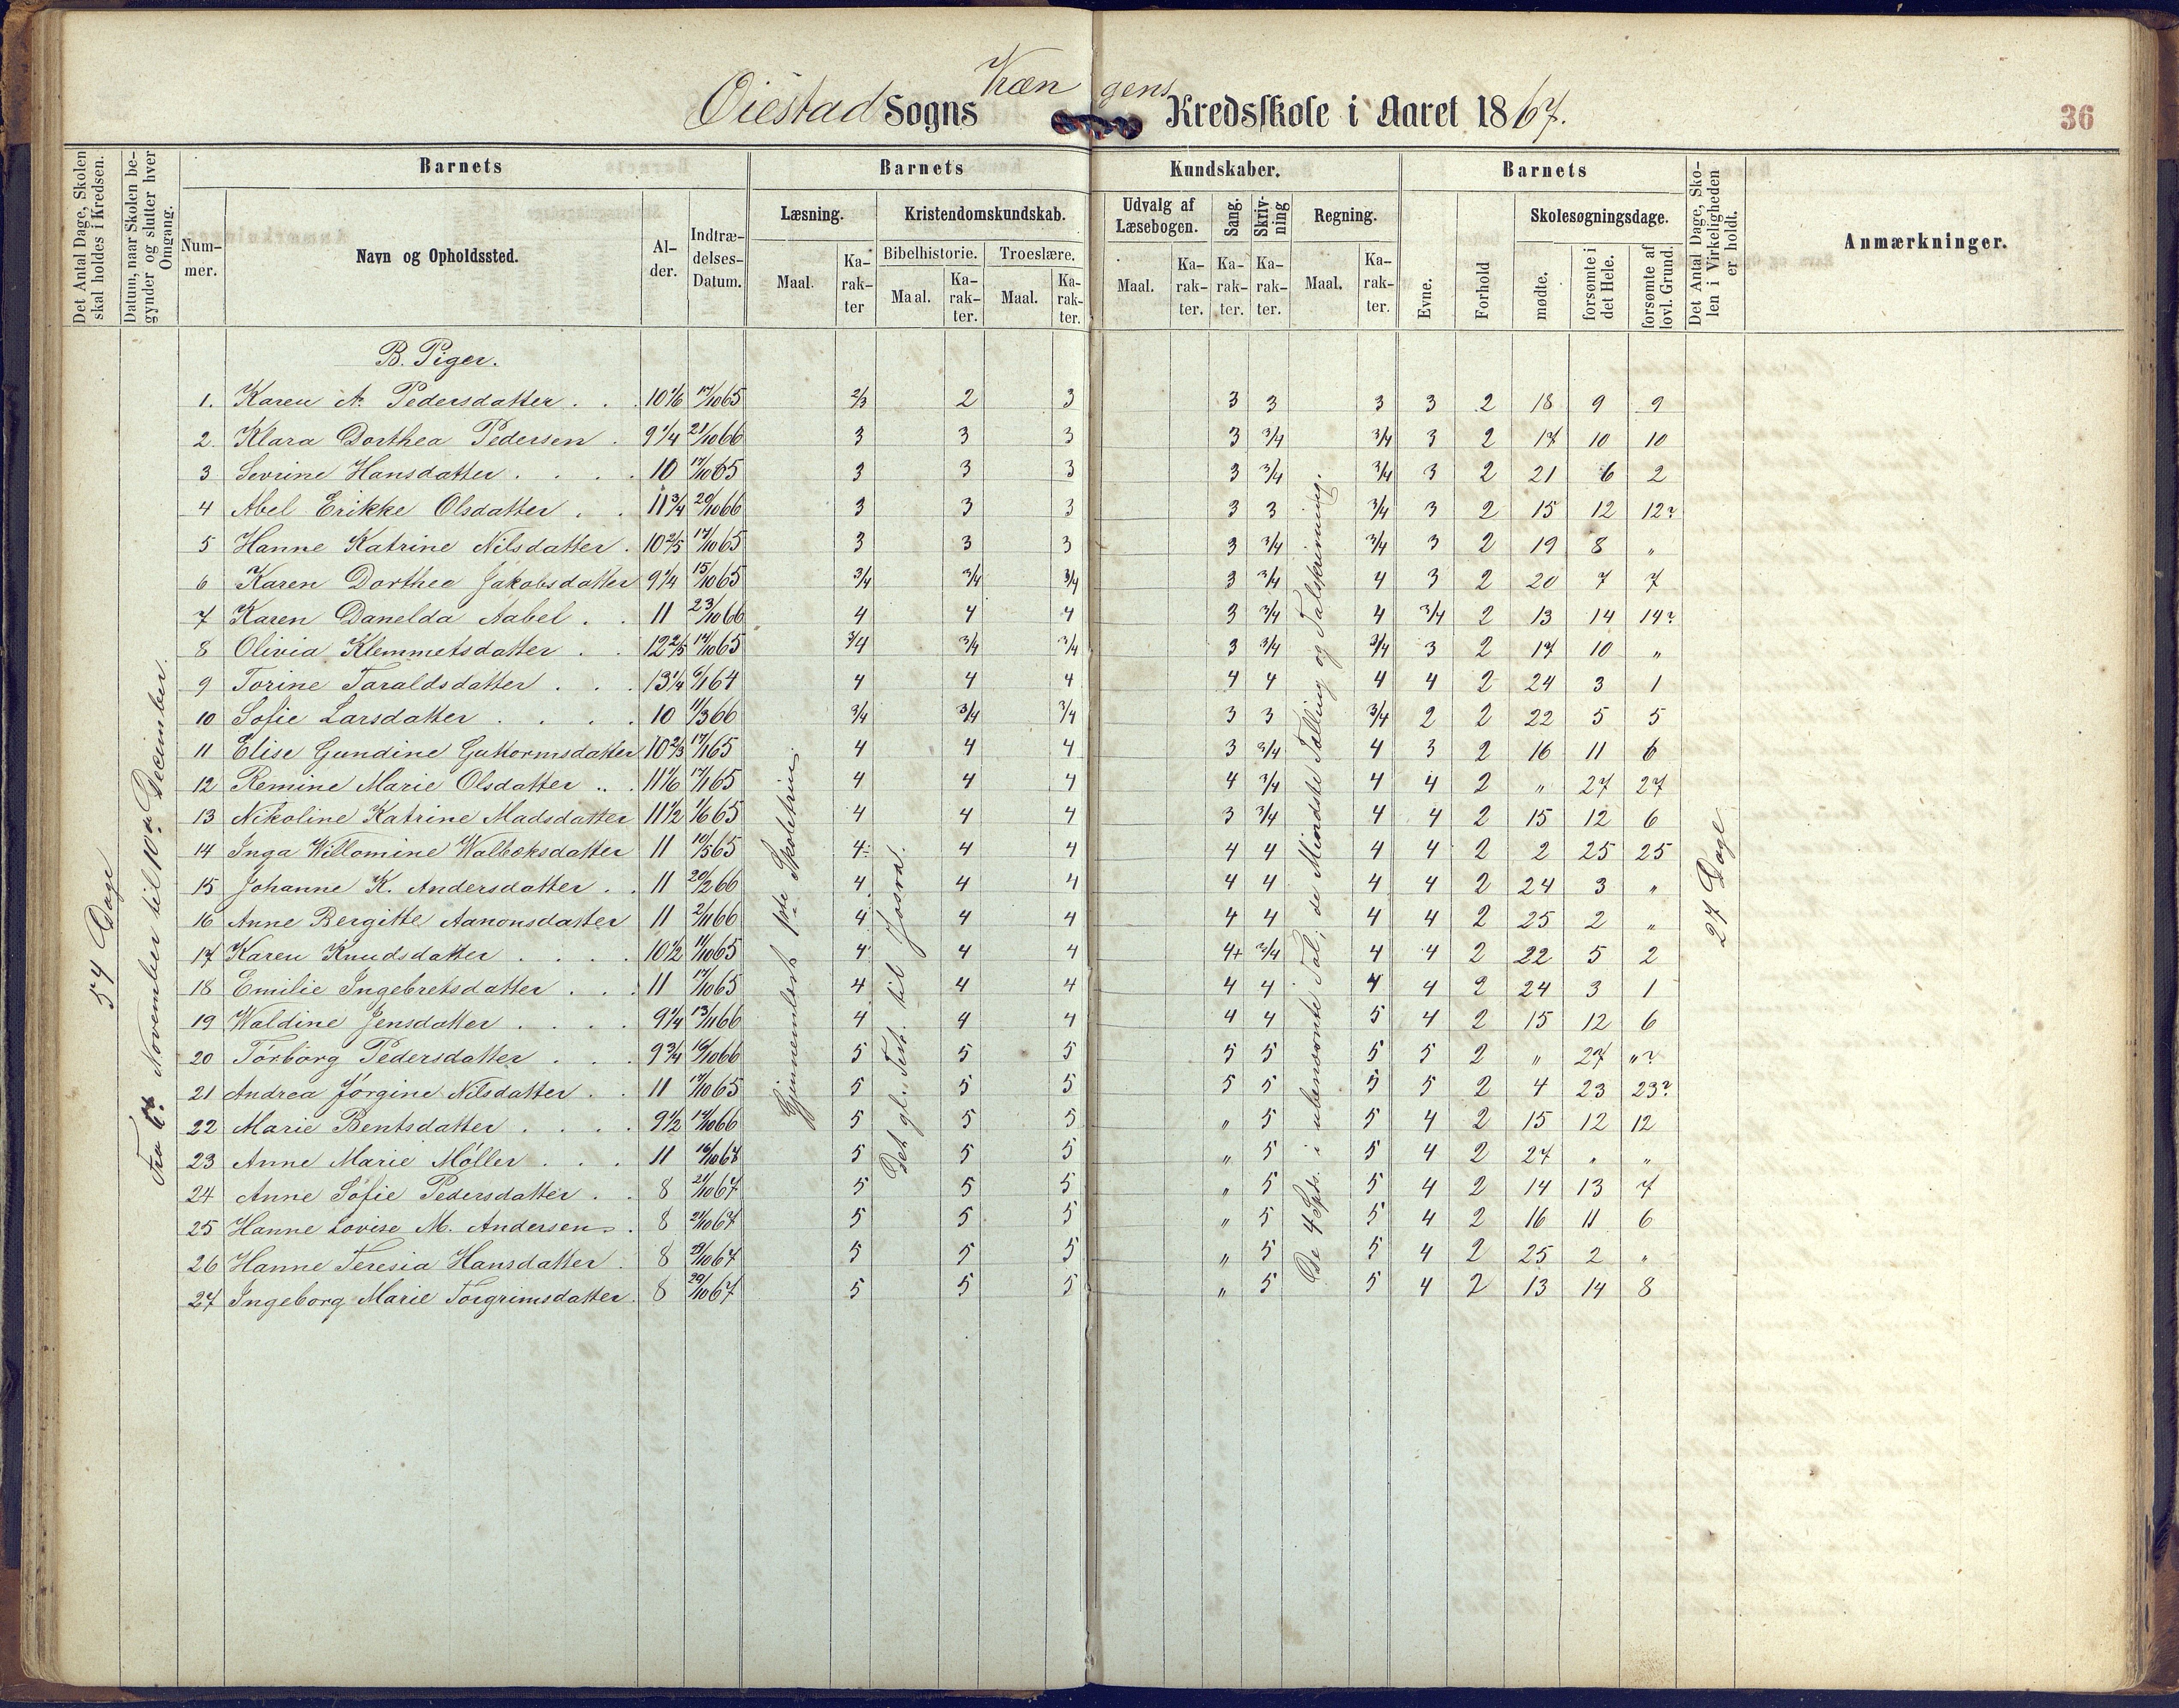 Øiestad Sogns Kræn gens Kredsskole i Aaret 1867.
36
Det Antal Dage, Skolen skal holdes i Kredsen.
Datum, naar Skolen begynder og slutter hver Omgang.
Barnets
Nummer.
Navn og Opholdssted.
Alder.
Indtrædelses-Datum.
Barnets Kundskaber.
Læsning.
Maal. Karakter
Kristendomskundskab.
Bibelhistorie.
Maal. Karakter.
Troeslære.
Maal. Karakter.
Udvalg af Læsebogen.
Maal. Karakter.
Sang.
Karakter.
Skrivning
Karakter.
Regning.
Maal. Karakter.
Barnets
Evne.
Forhold
Skolesøgningsdage.
mødte.
forsømte i det Hele.
forsømte af lovl. Grund.
Det Antal Dage, Skolen i Virkeligheden er holdt.
Anmærkninger.
54 Dage
November til 10de December.
Gjennemlæst 1ste Skoletrin.
Det gl. Test. til Josva.
De 4 Spts. i ubenævnte Tal; de Mindste Tælling og Talskrivning.
27 Dage
B. Piger.
1. Karen A. Pedersdatter . . 10 1/6 17/10 65 2/3 2 3 3 3 3 3 2 18 9 9
2. Klara Dorthea Pedersen . 9 1/4 21/10 66 3 3 3 3 3/4 3/4 3 2 17 10 10
3 Sevrine Hansdatter . . . . 10 17/10 65 3 3 3 3 3/4 3/4 3 2 21 6 2
4 Abel Erikke Olsdatter . . 11 3/4 20/10 66 3 3 3 3 3 3/4 3 2 15 12 12?
5 Hanne Katrine Nilsdatter . 10 2/5 17/10 65 3 3 3 3 3/4 3/4 3 2 19 8 "
6 Karen Dorthea Jakobsdatter 9 1/4 15/10 65 3/4 3/4 3/4 3 3/4 4 3 2 20 7 7
7 Karen Danelda Aabel . . 11 23/10 66 4 4 4 3 3/4 4 3/4 2 13 14 14?
8 Olivia Klemmetsdatter . . 12 2/5 17/10 65 3/4 3/4 3/4 3 3/4 3/4 3 2 17 10 "
9 Torine Taraldsdatter . . . 13 1/4 6/1 64 4 4 4 4 4 4 4 2 24 3 1
10 Sofie Larsdatter . . . . 10 11/3 66 3/4 3/4 3/4 3 3 3/4 2 2 22 5 5
11 Elise Gundine Guttormsdatter 10 2/3 17/1 65 4 4 4 3 3/4 4 3 2 16 11 6
12 Remine Marie Olsdatter .. . 11 1/6 17/1 65 4 4 4 4 3/4 4 4 2 " 27 27
13 Nikoline Katrine Madsdatter 11 1/2 1/6 65 4 4 4 3 3/4 4 4 2 15 12 6
14 Inga Willomine Walboksdatter 11 10/5 65 4 4 4 4 4 4 4 2 2 25 25
15 Johanne K. Andersdatter . . 11 20/2 66 4 4 4 4 4 4 4 2 24 3 "
16 Anne Bergitte Aanonsdatter 11 2/11 66 4 4 4 4 4 4 4 2 25 2 "
17 Karen Knudsdatter . . . . 10 1/2 11/10 65 4 4 4 4+ 3/4 4 4 2 22 5 2
18 Emilie Ingebretsdatter . . . 11 17/10 65 4 4 4 4 4 4 4 2 24 3 1
19 Waldine Jensdatter . . . . 9 1/4 13/11 66 4 4 4 4 4 5 4 2 15 12 6
20 Torborg Pedersdatter . . . 9 3/4 16/10 66 5 5 5 5 5 5 5 2 " 27 "?
21 Andrea Jørgine Nilsdatter . . 11 17/10 65 5 5 5 5 5 5 5 2 4 23 23?
22 Marie Bentsdatter . . . . 9 1/2 17/10 66 5 5 5 " 5 5 4 2 15 12 12
23 Anne Marie Møller . . . 11 16/10 67 5 5 5 " 5 5 4 2 27 " "
24 Anne Sofie Pedersdatter . . 8 21/10 67 5 5 5 " 5 5 4 2 14 13 7
25 Hanne Lovise M. Andersen . 8 21/10 67 5 5 5 " 5 5 4 2 16 11 6
26 Hanne Teresia Hansdatter . 8 29/10 67 5 5 5 " 5 5 4 2 25 2 "
27 Ingeborg Marie Torgrimsdatter . 8 29/10 67 5 5 5 " 5 5 4 2 13 14 8